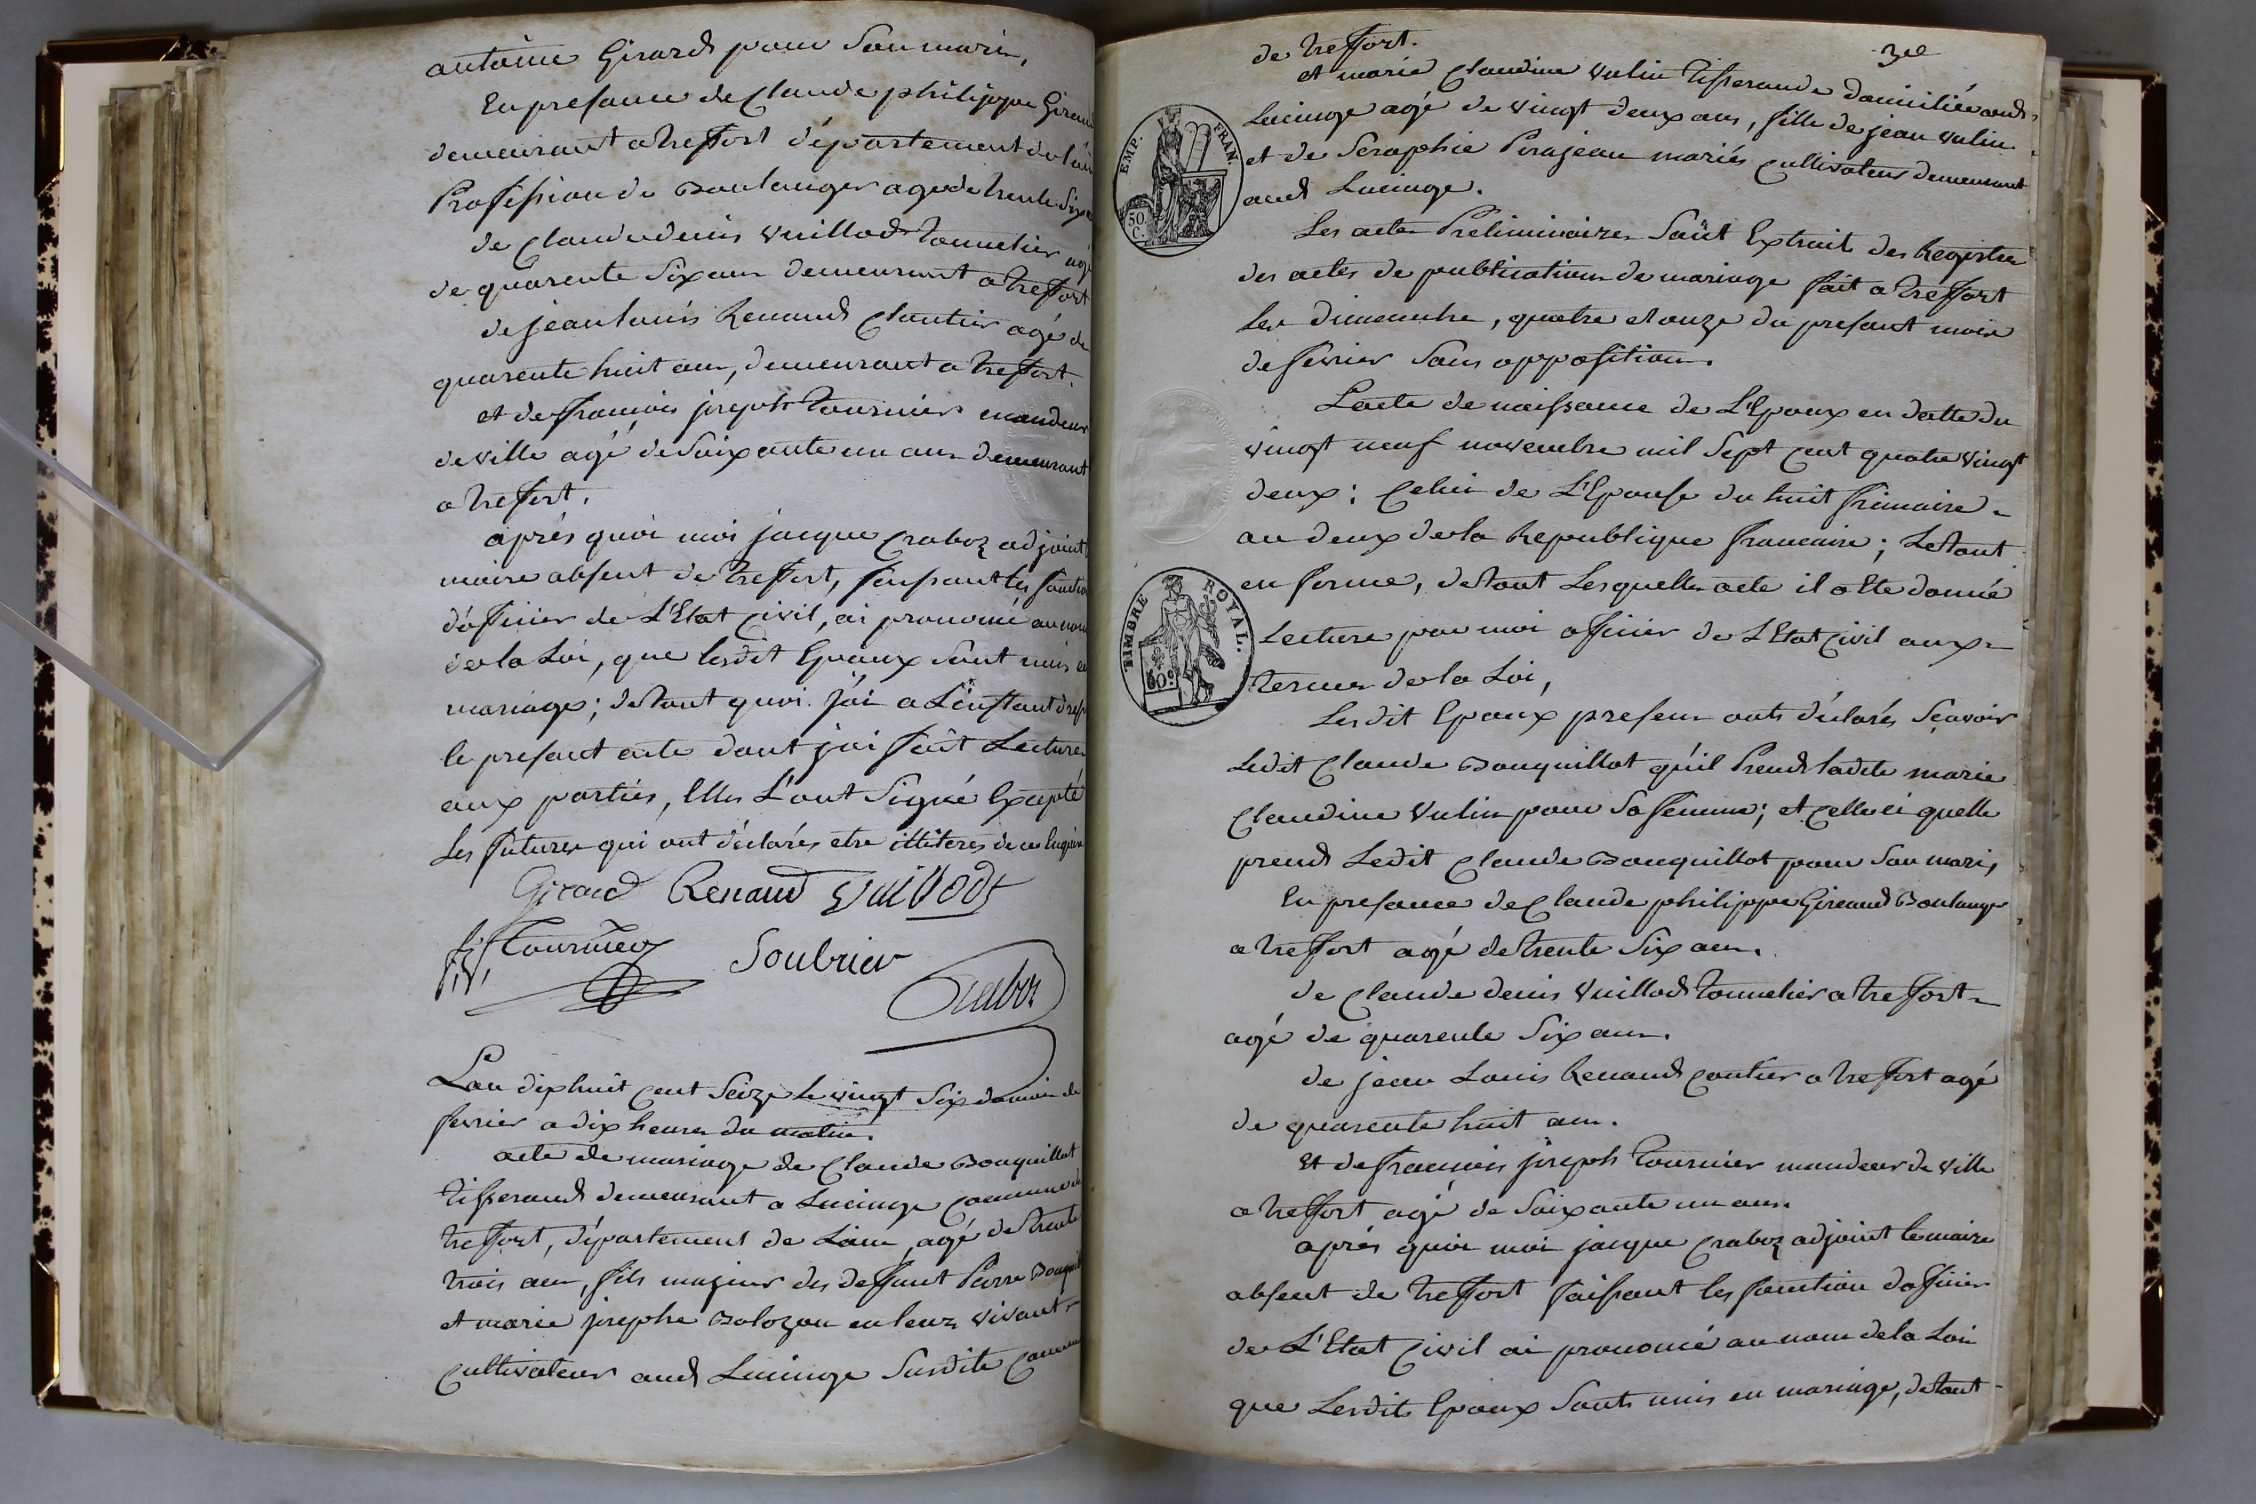 antoine Girard pour Son mari,
En presance de Claude philippe Girau
demeurant a treffort département de láin
Profession de Boulanger age de trente Six
de Claude denis Vuillod tonnelier agé
de quarente Six ans demeurant a treffort
de jean louis Renaud Cloutier agé de
quarente huit ans, demeurant a treffort.
et de francois joseph tournier mandeur
de ville agé de Soixante un ans demeurant
a treffort.
aprés quoi moi jacque Craboz adjoint
maire absent de treffort, faissant les fonction
d'officier de L'Etat Civil, ai prononcé au nom
de la Loi, que lesdit Epoux sont unis en
mariage; de tout quoi j'ai a L'instant
le presant acte dont jai fait Lecture
aux parties, Elles L'ont Signé Excepté
Les futures qui ont déclarés etre illiteres de ce enquis
Girard Renaud Vuillodt
f.j. Tournier Soubrier
Craboz
Lan dix huit Cent Seize le vingt Six du mois de
fevrier a dix heures du matin.
acte de mariage de Claude Bouquillot
tisserand demeurant a Lucinge Commune de
treffort, département de Lain, agé de trente
trois ans, fils majeur des deffunt Pierre Bouquill
et marie josephe Bolozon en leurs vivant
Cultivateur aud Lucinge Surdite Commune
3e
de treffort.
et marie Claudine Vulin tisserande domiciliée aud
Lucinge agé de vingt deux ans, fille de jean Vulin
et de Seraphie Pirajean mariés Cultivateur demeurant
aud Lucinge.
Les actes Préliminaires Soñt Extrait des Registre
des actes de publication de mariage fait a treffort
Les dimenche, quatre et onze du presant mois
de fevrier Sans opposition.
L'acte de naissance de L'Epoux en datte du
vingt neuf novembre mil Sept Cent quatre vingt
deux; Celui de L'Epouse du huit frimaire
an deux de la Republique francaise; Le tout
en forme, de tout Lesquelles acte il a Ete donné
Lecture par moi officier de L'Etat Civil aux
termes de la Loi,
Lesdit Epoux presens onts déclarés Scavoir
Ledit Claude Bouquillot qu'il Prend ladite marie
Claudine Vulin pour Sa femme; et Celle ci quelle
prend Ledit Claude Bouquillot pour Son mari,
En presance de Claude philippe Gireaud Boulanger
a treffort agé de trente Six ans.
de Claude denis Vuillod tonnelier a treffort
agé de quarente Six ans.
de jean Louis Renaud Coutier a treffort agé
de quarente huit ans.
Et de francois joseph tournier mandeur de ville
a treffort agé de Soixante un ans.
aprés quoi moi jacque Craboz adjoint le maire
absent de treffort faissant les fonction dofficier
de L'Etat Civil ai prononcé au nom de la Loi
que Lesdits Epoux Sonts unis en mariage, de tout
EMP. FRAN.
50 C.
TIMBRE ROYAL.
50 c